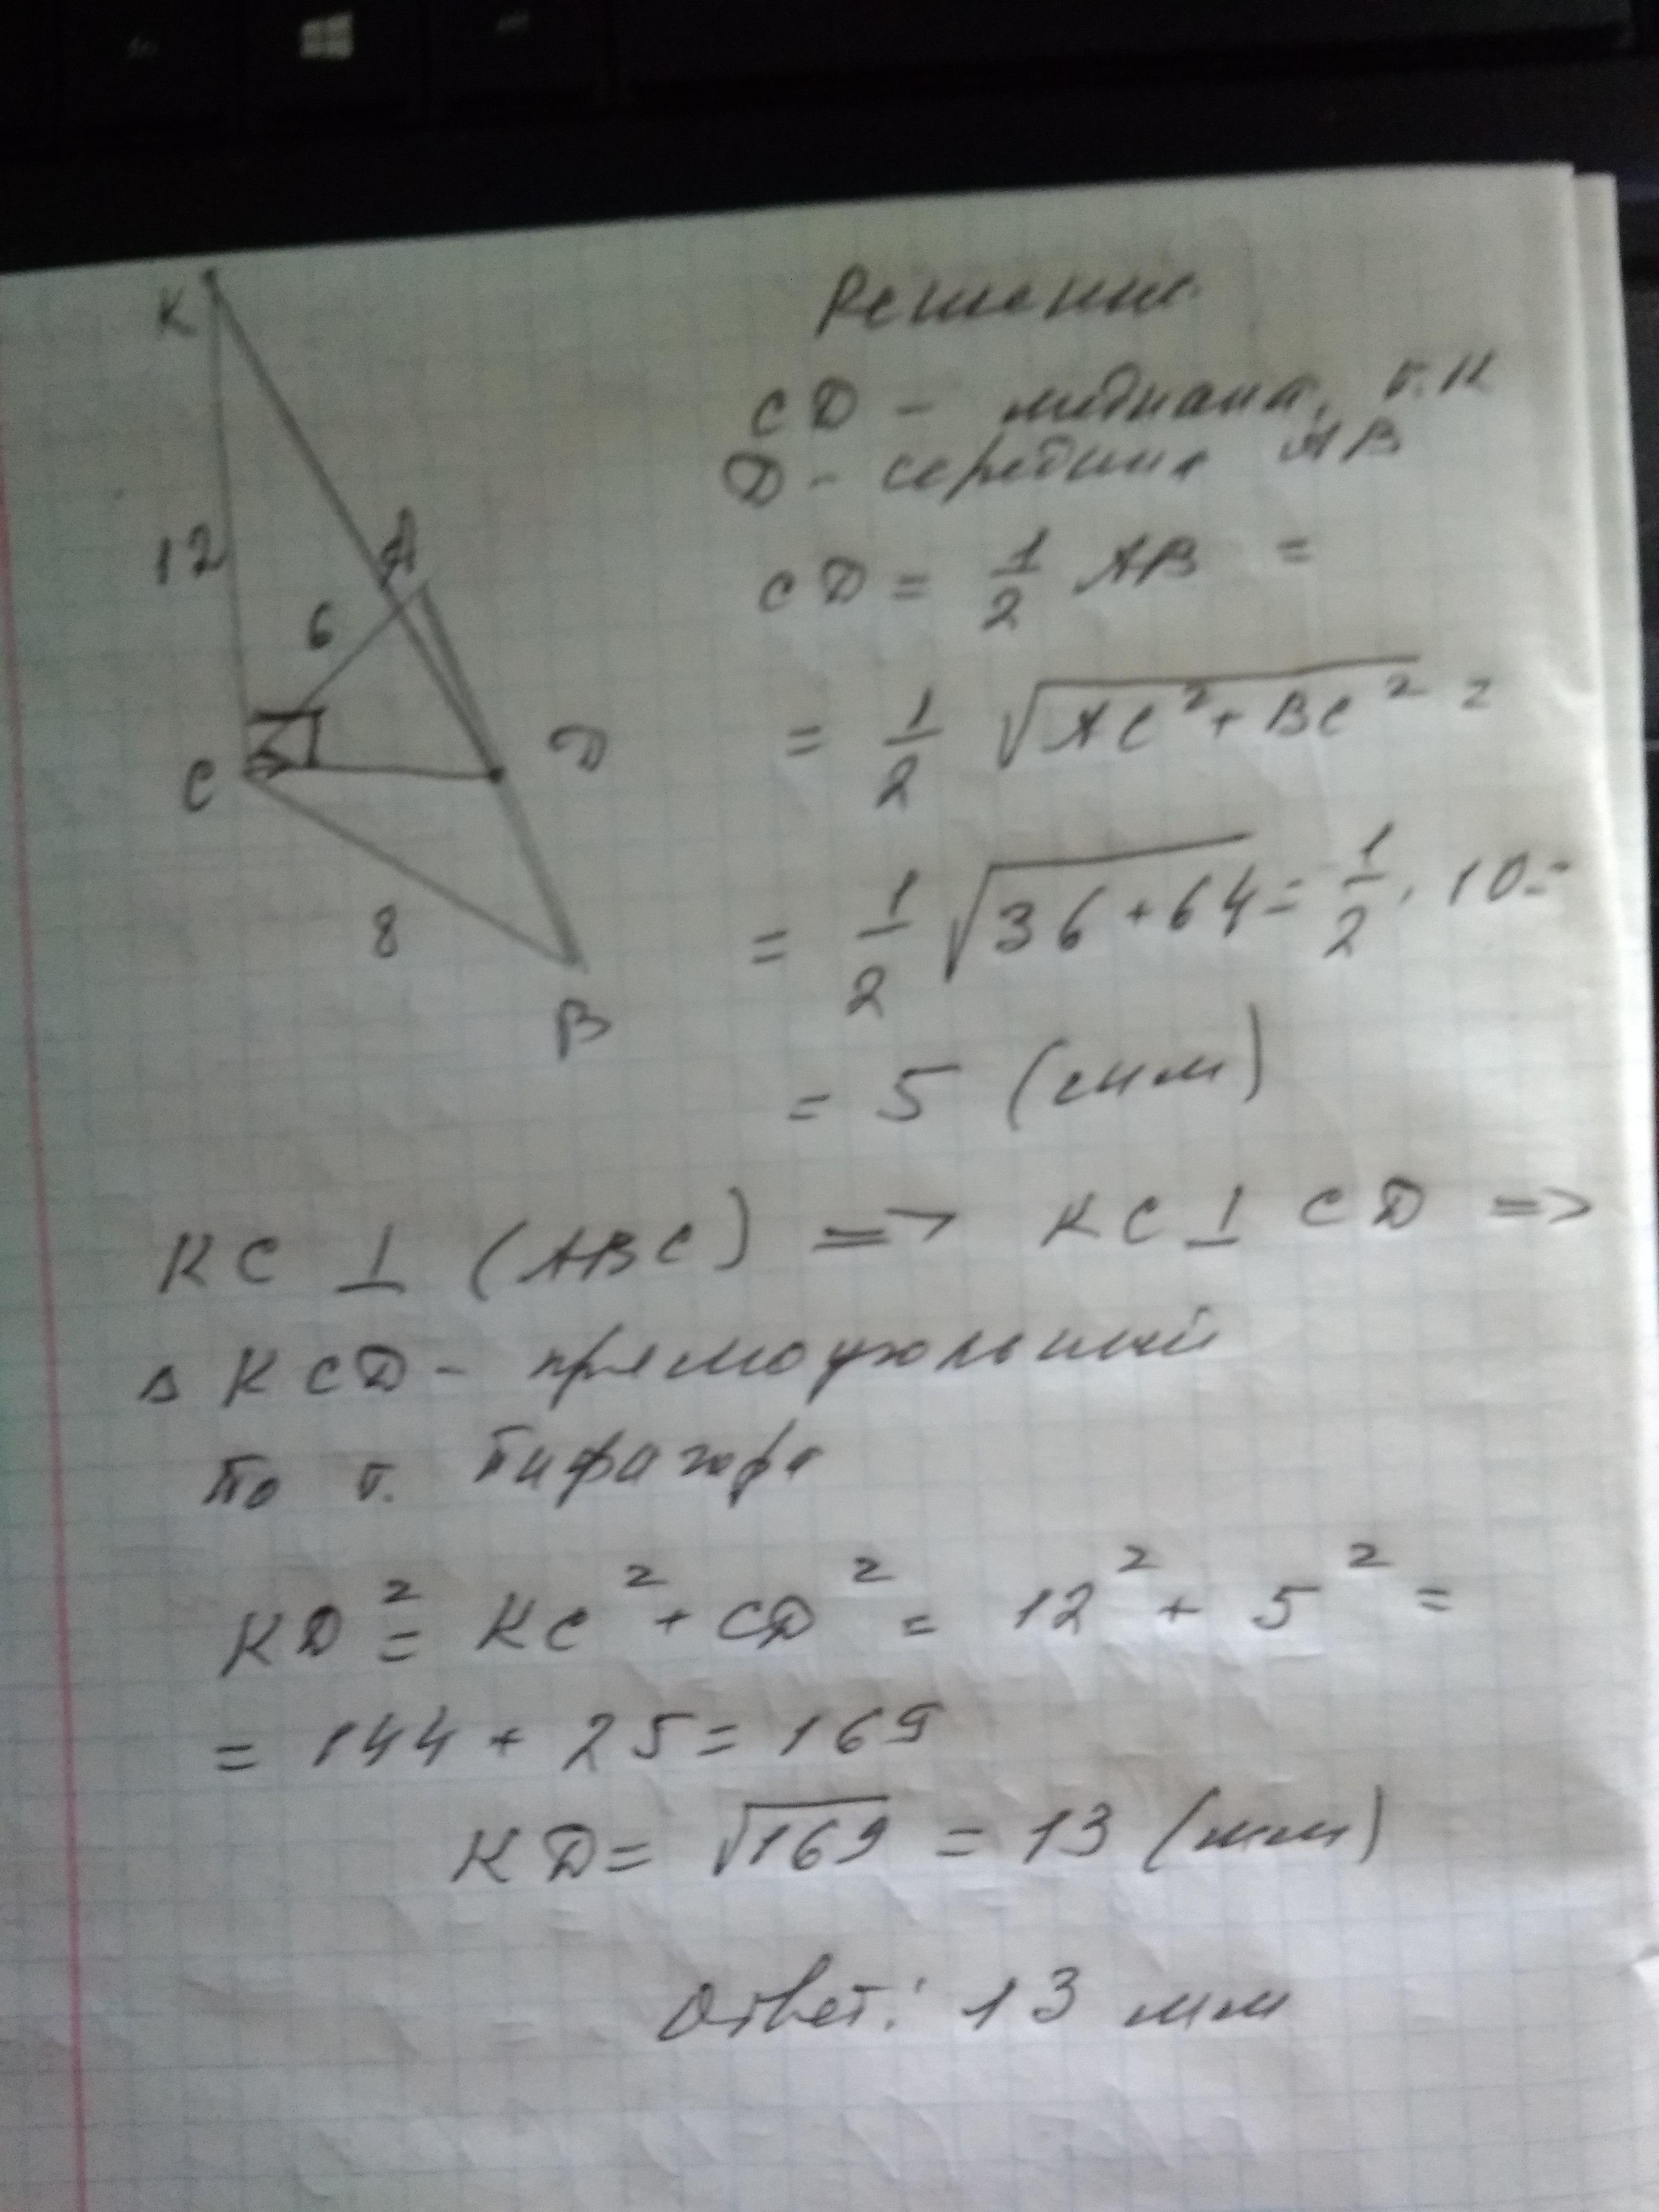 K
12
A
6
C
D
8
B
Решение.
CD - медиана, т.к
D - середина AB
CD = 1/2 AB =
= 1/2 √(AC² + BC²) =
= 1/2 √(36 + 64) = 1/2 · 10 =
= 5 (мм)
KC ⊥ (ABC) => KC ⊥ CD =>
∆ KCD - прямоугольный
По т. Пифагора
KD² = KC² + CD² = 12² + 5² =
= 144 + 25 = 169
KD = √169 = 13 (мм)
Ответ: 13 мм